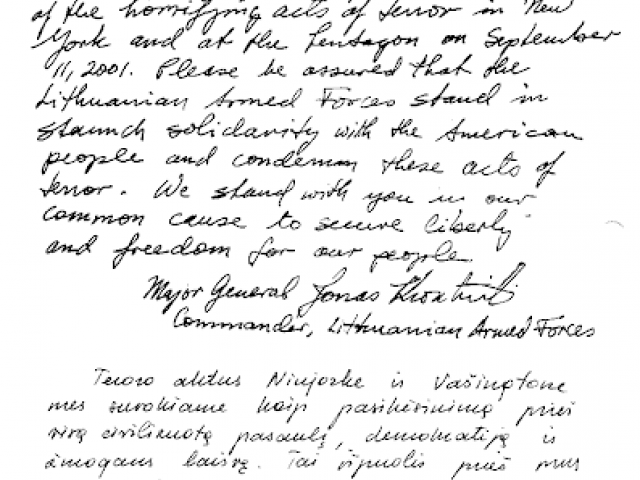 of the horrifying acts of terror in New
York and at the Pentagon on September
11, 2001. Please be assured that the
Lithuanian Armed Forces stand in
staunch solidarity with the American
people and condemn these acts of
terror. We stand with you in our
common cause to secure liberty
and freedom for our people.
Major General Jonas
Commander, Lithuanian Armed Forces
Teroro aktus Niujorke ir Vašingtone
mes suvokiame kaip pasikėsinimą prieš
visą civilizuotą pasaulį, demokratiją ir
žmogaus laisvę. Tai išpuolis prieš mus